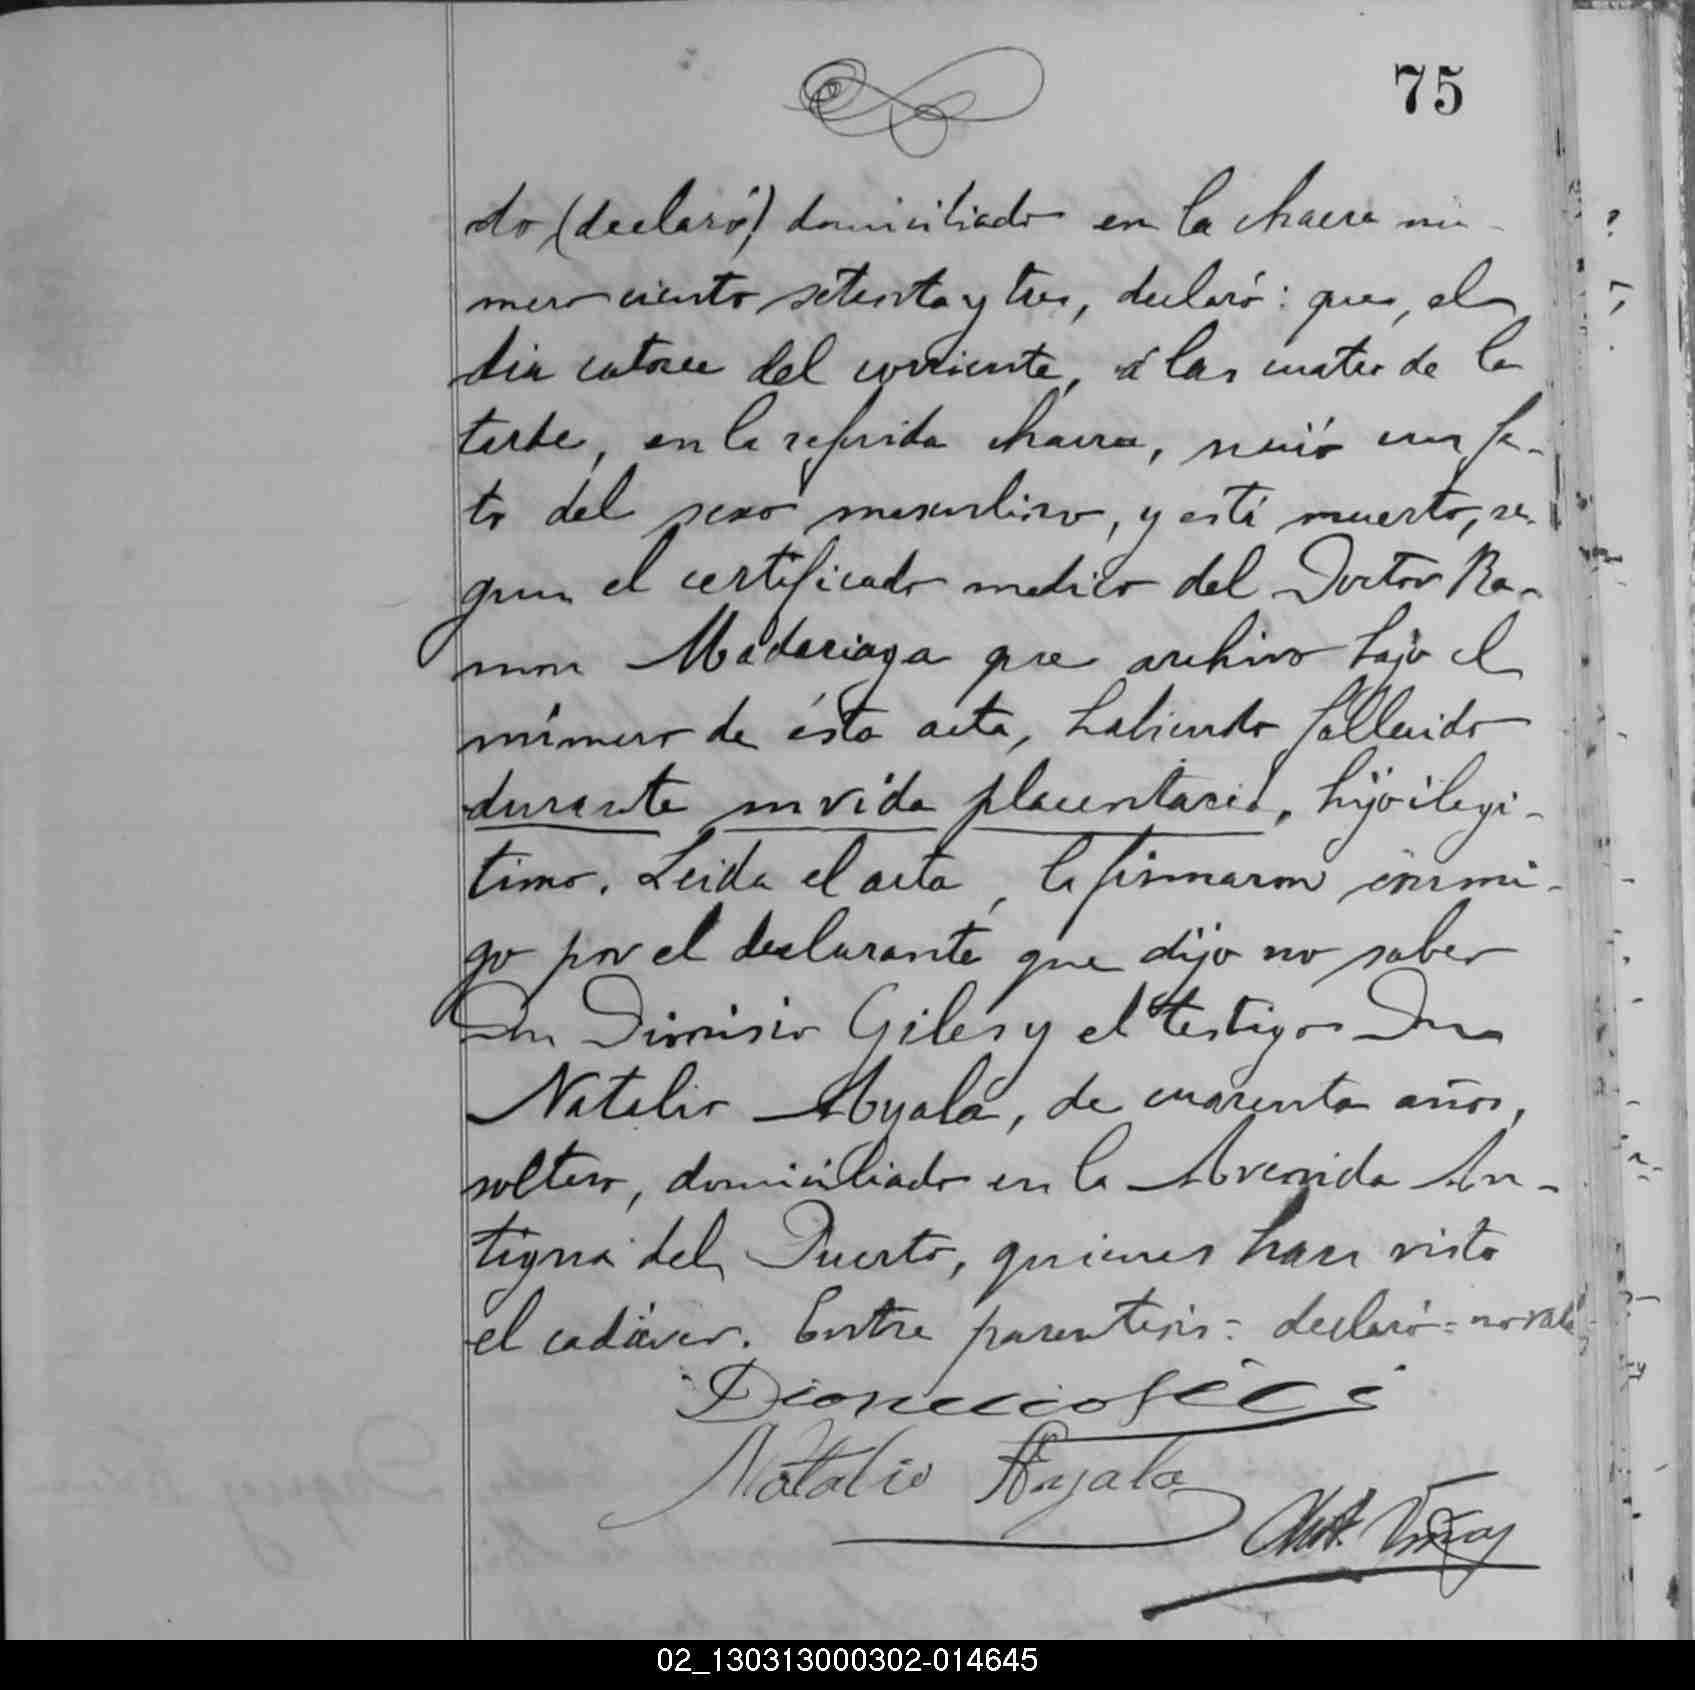 75
do (declaró) domiciliado en la chacra nú-
mero ciento setenta y tres, declaró: que, el
dia catorce del corriente, á las cuatro de la
tarde, en la referida chacra, nació un fe-
to del sexo masculino, y está muerto, se-
gun el certificado medico del Doctor Ra-
mon Madariaga que archivo bajo el
número de ésta acta, habiendo fallecido
durante su vida placentaria, hijo ilegi-
timo. Leida el acta, la firmaron conmi-
go por el declarante que dijo no saber
Don Dionisio Giles y el testigo Don
Natalio Ayala, de cuarenta años,
soltero, domiciliado en la Avenida An-
tigua del Puerto, quienes han visto
el cadáver. Entre parentesis = declaró = no vale
Natalio Ayala
02_130313000302-014645